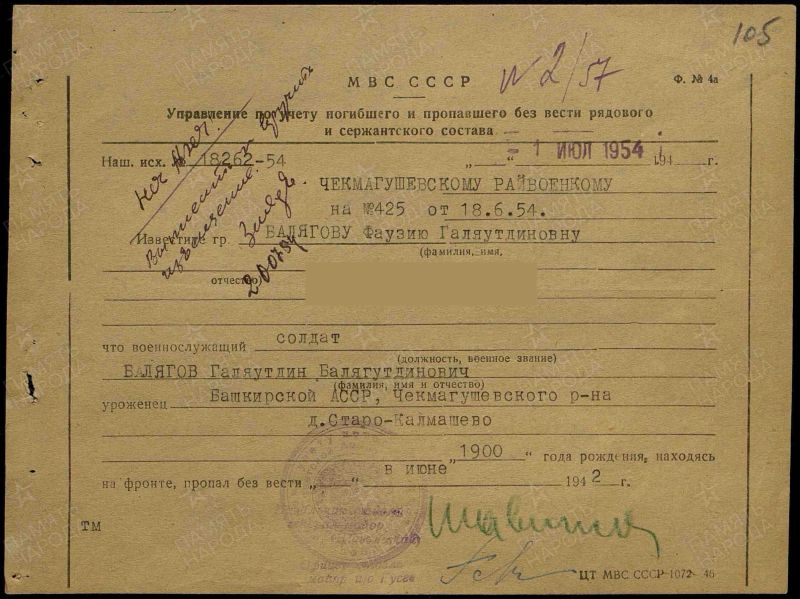 105
МВС СССР
N 2/57
Ф. № 4а
Управление по учету погибшего и пропавшего без вести рядового
и сержантского состава
Наш. исх. № 18262-54
„ “ - 1 ИЮЛ 1954 194 г.
ЧЕКМАГУШЕВСКОМУ РАЙВОЕНКОМУ
на №425 от 18.6.54.
Известите гр. БАЛЯГОВУ Фаузию Галяутдиновну
(фамилия, имя,
отчество)
что военнослужащий солдат
(должность, военное звание)
БАЛЯГОВ Галяутдин Балягутдинович
(фамилия, имя и отчество)
уроженец Башкирской АССР, Чекмагушевского р-на
д.Старо-Калмашево
„1900 “ года рождения, находясь
на фронте, пропал без вести „ “ в июне 1942 г.
ТМ
ЦТ МВС СССР 1072-46
ПАМЯТЬ НАРОДА